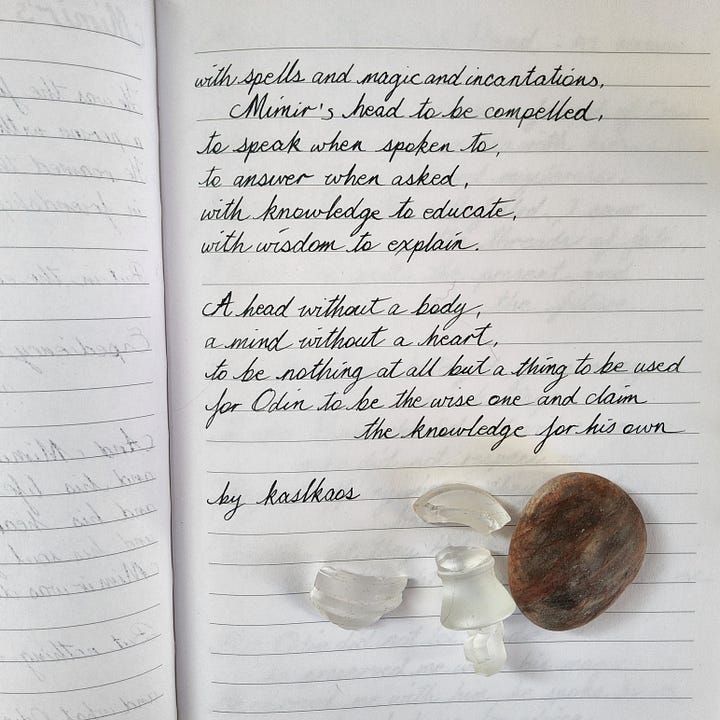 with spells and magic and incantations,
Mimir's head to be compelled,
to speak when spoken to,
to answer when asked,
with knowledge to educate,
with wisdom to explain.
A head without a body,
a mind without a heart,
to be nothing at all but a thing to be used
for Odin to be the wise one and claim
the knowledge for his own
by kaslkaos